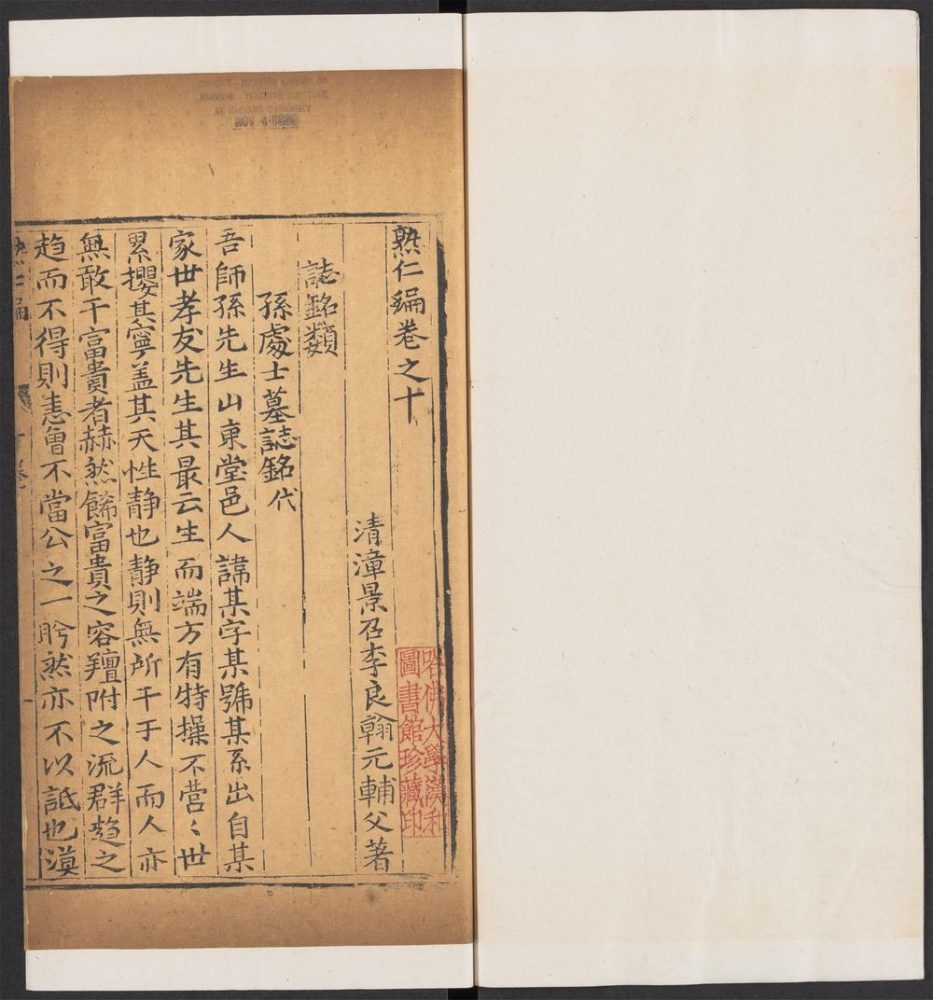 熟仁編卷之十
清漳景召李良翰元輔父著
誌銘類
孫處士墓誌銘代
吾師孫先生山東堂邑人諱某字某號某系出自某
家世孝友先生其最云生而端方有特操不營〻世
累攖其寧盖其天性静也静則無所干于人而人亦
無敢干富貴者赫然餙富貴之容羶附之流群趋之
趋而不得則恚曾不當公之一盻然亦不以詆也漠
哈佛大學漢和
圖書館珍藏印
HARVARD-YENCHING INSTITUTE
AT HARVARD UNIVERSITY
NOV 4